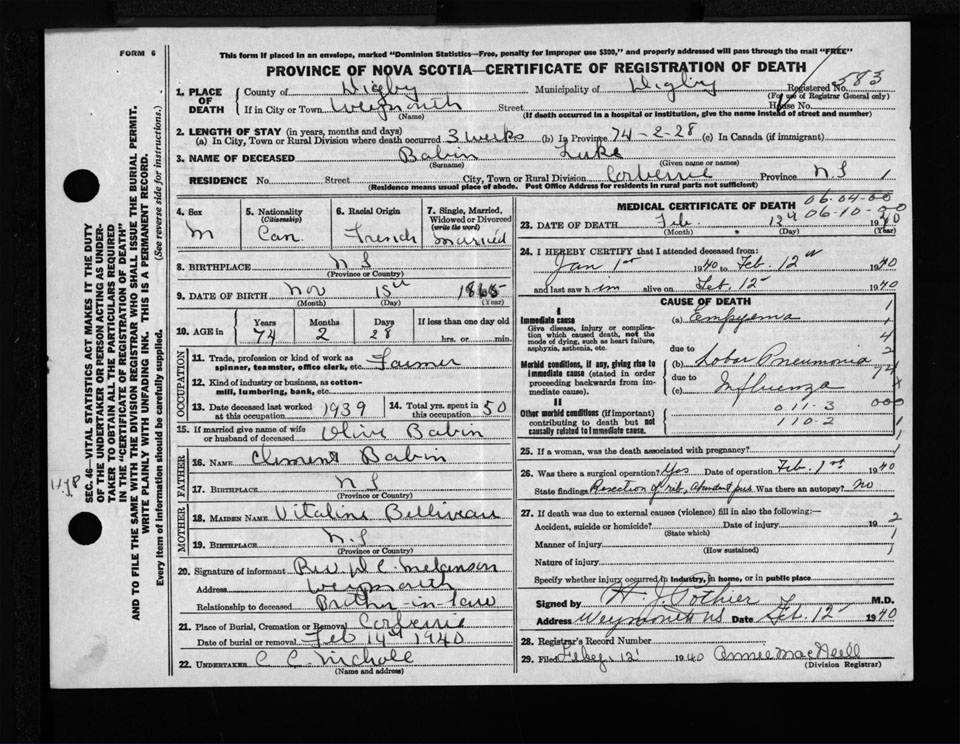 FORM 6
This form if placed in an envelope, marked "Dominion Statistics—Free, penalty for improper use $300," and properly addressed will pass through the mail "FREE"
PROVINCE OF NOVA SCOTIA—CERTIFICATE OF REGISTRATION OF DEATH
583
1. PLACE OF DEATH
County of Digby Municipality of Digby Registered No.
(For use of Registrar General only)
If in City or Town Weymouth Street House No.
(Name) (If death occurred in a hospital or institution, give the name instead of street and number)
2. LENGTH OF STAY (in years, months and days)
(a) In City, Town or Rural Division where death occurred 3 weeks (b) In Province 74-2-28 (c) In Canada (if immigrant)
3. NAME OF DECEASED Babin Luke
(Surname) (Given name or names)
RESIDENCE No. Street City, Town or Rural Division Corberrie Province N.S 1
(Residence means usual place of abode. Post Office Address for residents in rural parts not sufficient)
4. Sex M
5. Nationality (Citizenship) Can.
6. Racial Origin French
7. Single, Married, Widowed or Divorced (write the word) married
8. BIRTHPLACE N S
(Province or Country)
9. DATE OF BIRTH Nov 15th 1865
(Month) (Day) (Year)
10. AGE in Years Months Days If less than one day old
74 2 28 hrs. or min.
OCCUPATION
11. Trade, profession or kind of work as spinner, teamster, office clerk, etc. Farmer
12. Kind of industry or business, as cotton-mill, lumbering, bank, etc.
13. Date deceased last worked at this occupation 1939
14. Total yrs. spent in this occupation 50
15. If married give name of wife or husband of deceased Olive Babin
FATHER
16. NAME Clement Babin
17. BIRTHPLACE N S
(Province or Country)
MOTHER
18. MAIDEN NAME Vitaline Belliveau
19. BIRTHPLACE N.S
(Province or Country)
20. Signature of informant Rev. W. C. Melanson
Address Weymouth
Relationship to deceased Brother-in-law
21. Place of Burial, Cremation or Removal Corberrie
Date of burial or removal Feb 14th 1940
22. UNDERTAKER C C. Nicholl
(Name and address)
MEDICAL CERTIFICATE OF DEATH
06-04-00
06-10-20
23. DATE OF DEATH Feb. 12th 1940
(Month) (Day) (Year)
24. I HEREBY CERTIFY that I attended deceased from:
Jan 1st 1940 to Feb. 12th 1940
and last saw him alive on Feb, 12 1940
CAUSE OF DEATH
I
Immediate cause
Give disease, injury or complication which caused death, not the mode of dying, such as heart failure, asphyxia, asthenia, etc.
(a) Empyema
due to
Morbid conditions, if any, giving rise to immediate cause (stated in order proceeding backwards from immediate cause).
(b) Lobar Pneumonia
due to
(c) Influenza
II
Other morbid conditions (if important) contributing to death but not causally related to immediate cause.
011-3
110-2
25. If a woman, was the death associated with pregnancy?
26. Was there a surgical operation? Yes Date of operation Feb. 1st 1940
State findings Resection of rib, Abundant pus Was there an autopsy? No
27. If death was due to external causes (violence) fill in also the following:
Accident, suicide or homicide? Date of injury 19
(State which)
Manner of injury
(How sustained)
Nature of injury
Specify whether injury occurred in industry, in home, or in public place
Signed by H. J. Pothier M.D.
Address Weymouth NS Date Feb. 12 1940
28. Registrar's Record Number
29. Filed Feby, 12 1940 Annie MacNeill
(Division Registrar)
SEC. 46—VITAL STATISTICS ACT MAKES IT THE DUTY OF THE UNDERTAKER OR PERSON ACTING AS UNDERTAKER TO OBTAIN ALL THE PARTICULARS REQUIRED IN THE "CERTIFICATE OF REGISTRATION OF DEATH" AND TO FILE THE SAME WITH THE DIVISION REGISTRAR WHO SHALL ISSUE THE BURIAL PERMIT.
WRITE PLAINLY WITH UNFADING INK. THIS IS A PERMANENT RECORD.
Every item of information should be carefully supplied. (See reverse side for instructions.)